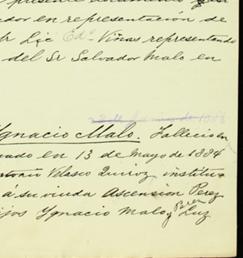 presente documento
en representación de
Lic Edo Viñas representando
del Sr Salvador Malo en
Ignacio Malo. Fallecio en
en 13 de Mayo de 1884
Velasco Quiroz instituı
á su viuda Ascension Perez
Ygnacio Malo y Luz